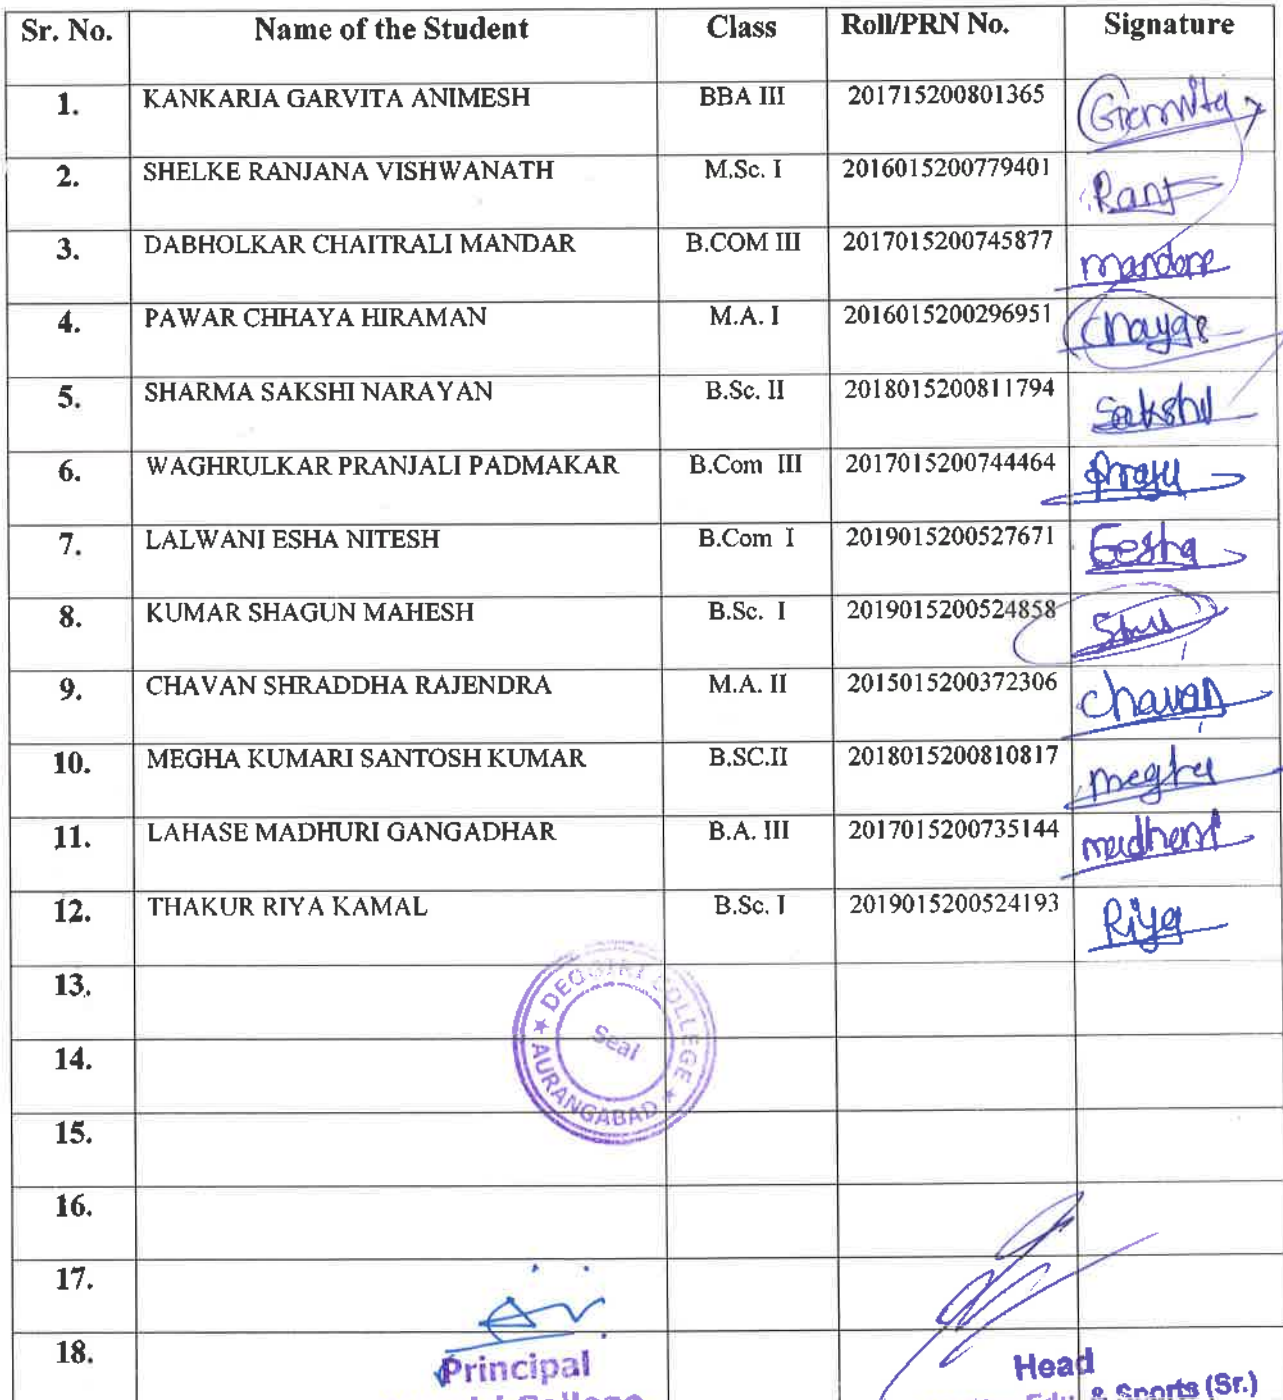 Sr. No. Name of the Student Class Roll/PRN No. Signature
1. KANKARIA GARVITA ANIMESH BBA III 201715200801365 Garvita
2. SHELKE RANJANA VISHWANATH M.Sc. I 2016015200779401
3. DABHOLKAR CHAITRALI MANDAR B.COM III 2017015200745877
4. PAWAR CHHAYA HIRAMAN M.A. I 2016015200296951
5. SHARMA SAKSHI NARAYAN B.Sc. II 2018015200811794 Sakshi
6. WAGHRULKAR PRANJALI PADMAKAR B.Com III 2017015200744464
7. LALWANI ESHA NITESH B.Com I 2019015200527671 Eesha
8. KUMAR SHAGUN MAHESH B.Sc. I 2019015200524858
9. CHAVAN SHRADDHA RAJENDRA M.A. II 2015015200372306 Chavan
10. MEGHA KUMARI SANTOSH KUMAR B.SC.II 2018015200810817 megha
11. LAHASE MADHURI GANGADHAR B.A. III 2017015200735144
12. THAKUR RIYA KAMAL B.Sc. I 2019015200524193 Riya
13.
DEOGIRI COLLEGE
Seal
14.
AURANGABAD
15.
16.
17.
18.
Principal Head
College Edu. & Sports (Sr.)